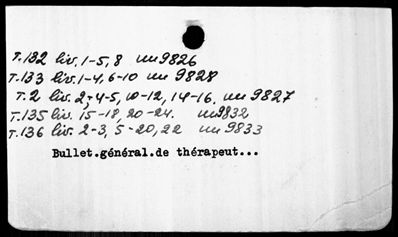 T.132 liv. 1-5, 8 ин 9826
T.133 liv. 1-4, 6-10 ин 9828
T.2 liv. 2, 4-5, 10-12, 14-16. ин 9827
T.135 liv. 15-18, 20-24. ин 9832
T.136 liv. 2-3, 5-20, 22 ин 9833
Bullet.général.de thérapeut...